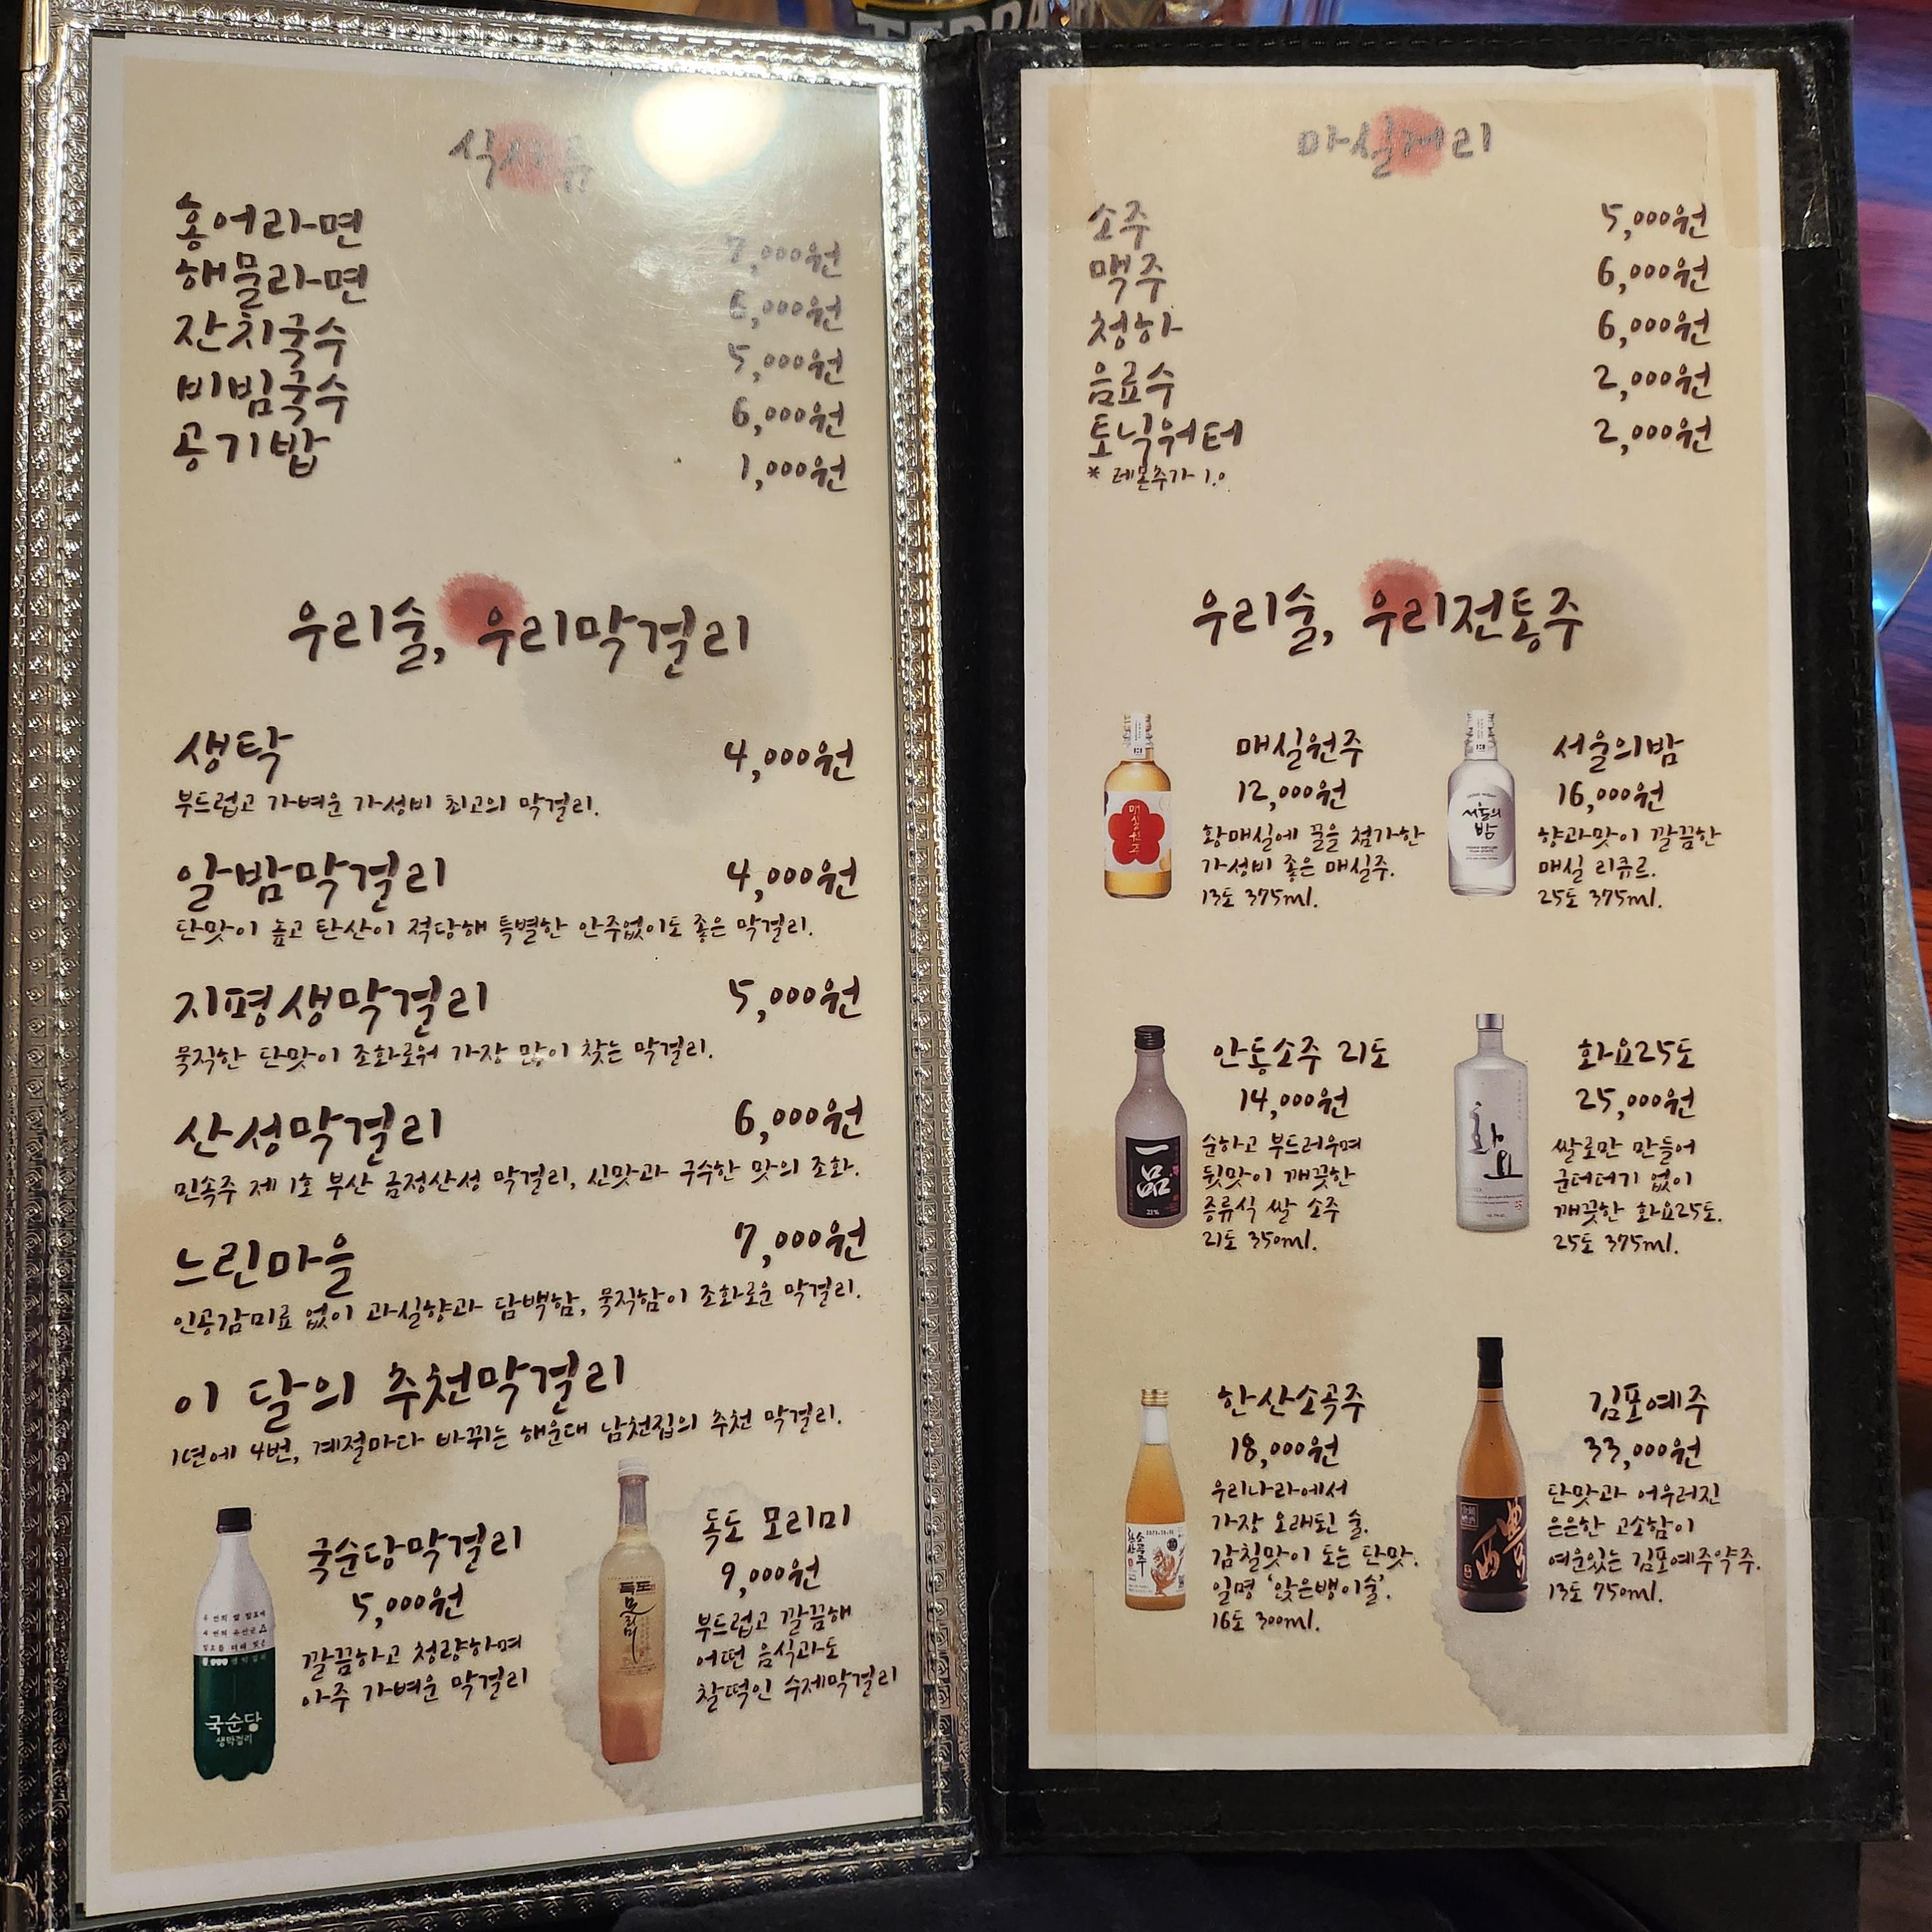 TERRA
식사류
홍어라면 7,000원
해물라면 6,000원
잔치국수 5,000원
비빔국수 6,000원
공기밥 1,000원
우리술, 우리막걸리
생탁 4,000원
부드럽고 가벼운 가성비 최고의 막걸리.
알밤막걸리 4,000원
단맛이 높고 탄산이 적당해 특별한 안주없이도 좋은 막걸리.
지평생막걸리 5,000원
묵직한 단맛이 조화로워 가장 많이 찾는 막걸리.
산성막걸리 6,000원
민속주 제 1호 부산 금정산성 막걸리, 신맛과 구수한 맛의 조화.
느린마을 7,000원
인공감미료 없이 과실향과 담백함, 묵직함이 조화로운 막걸리.
이 달의 추천막걸리
1년에 4번, 계절마다 바뀌는 해운대 남천집의 추천 막걸리.
국순당막걸리
5,000원
깔끔하고 청량하며
아주 가벼운 막걸리
국순당
생막걸리
독도 모리미
9,000원
부드럽고 깔끔해
어떤 음식과도
찰떡인 수제막걸리
독도
모리미
마실거리
소주 5,000원
맥주 6,000원
청하 6,000원
음료수 2,000원
토닉워터 2,000원
* 레몬추가 1.0
우리술, 우리전통주
매실원주
12,000원
황매실에 꿀을 첨가한
가성비 좋은 매실주.
13도 375ml.
매실원주
서울의밤
16,000원
향과맛이 깔끔한
매실 리큐르.
25도 375ml.
서울의
밤
안동소주 21도
14,000원
순하고 부드러우며
뒷맛이 깨끗한
증류식 쌀 소주
21도 350ml.
一品
21%
화요25도
25,000원
쌀로만 만들어
군더더기 없이
깨끗한 화요25도.
25도 375ml.
화요
한산소곡주
18,000원
우리나라에서
가장 오래된 술.
감칠맛이 도는 단맛.
일명 '앉은뱅이술'.
16도 300ml.
한산
소곡주
김포예주
33,000원
단맛과 어우러진
은은한 고소함이
여운있는 김포예주약주.
13도 750ml.